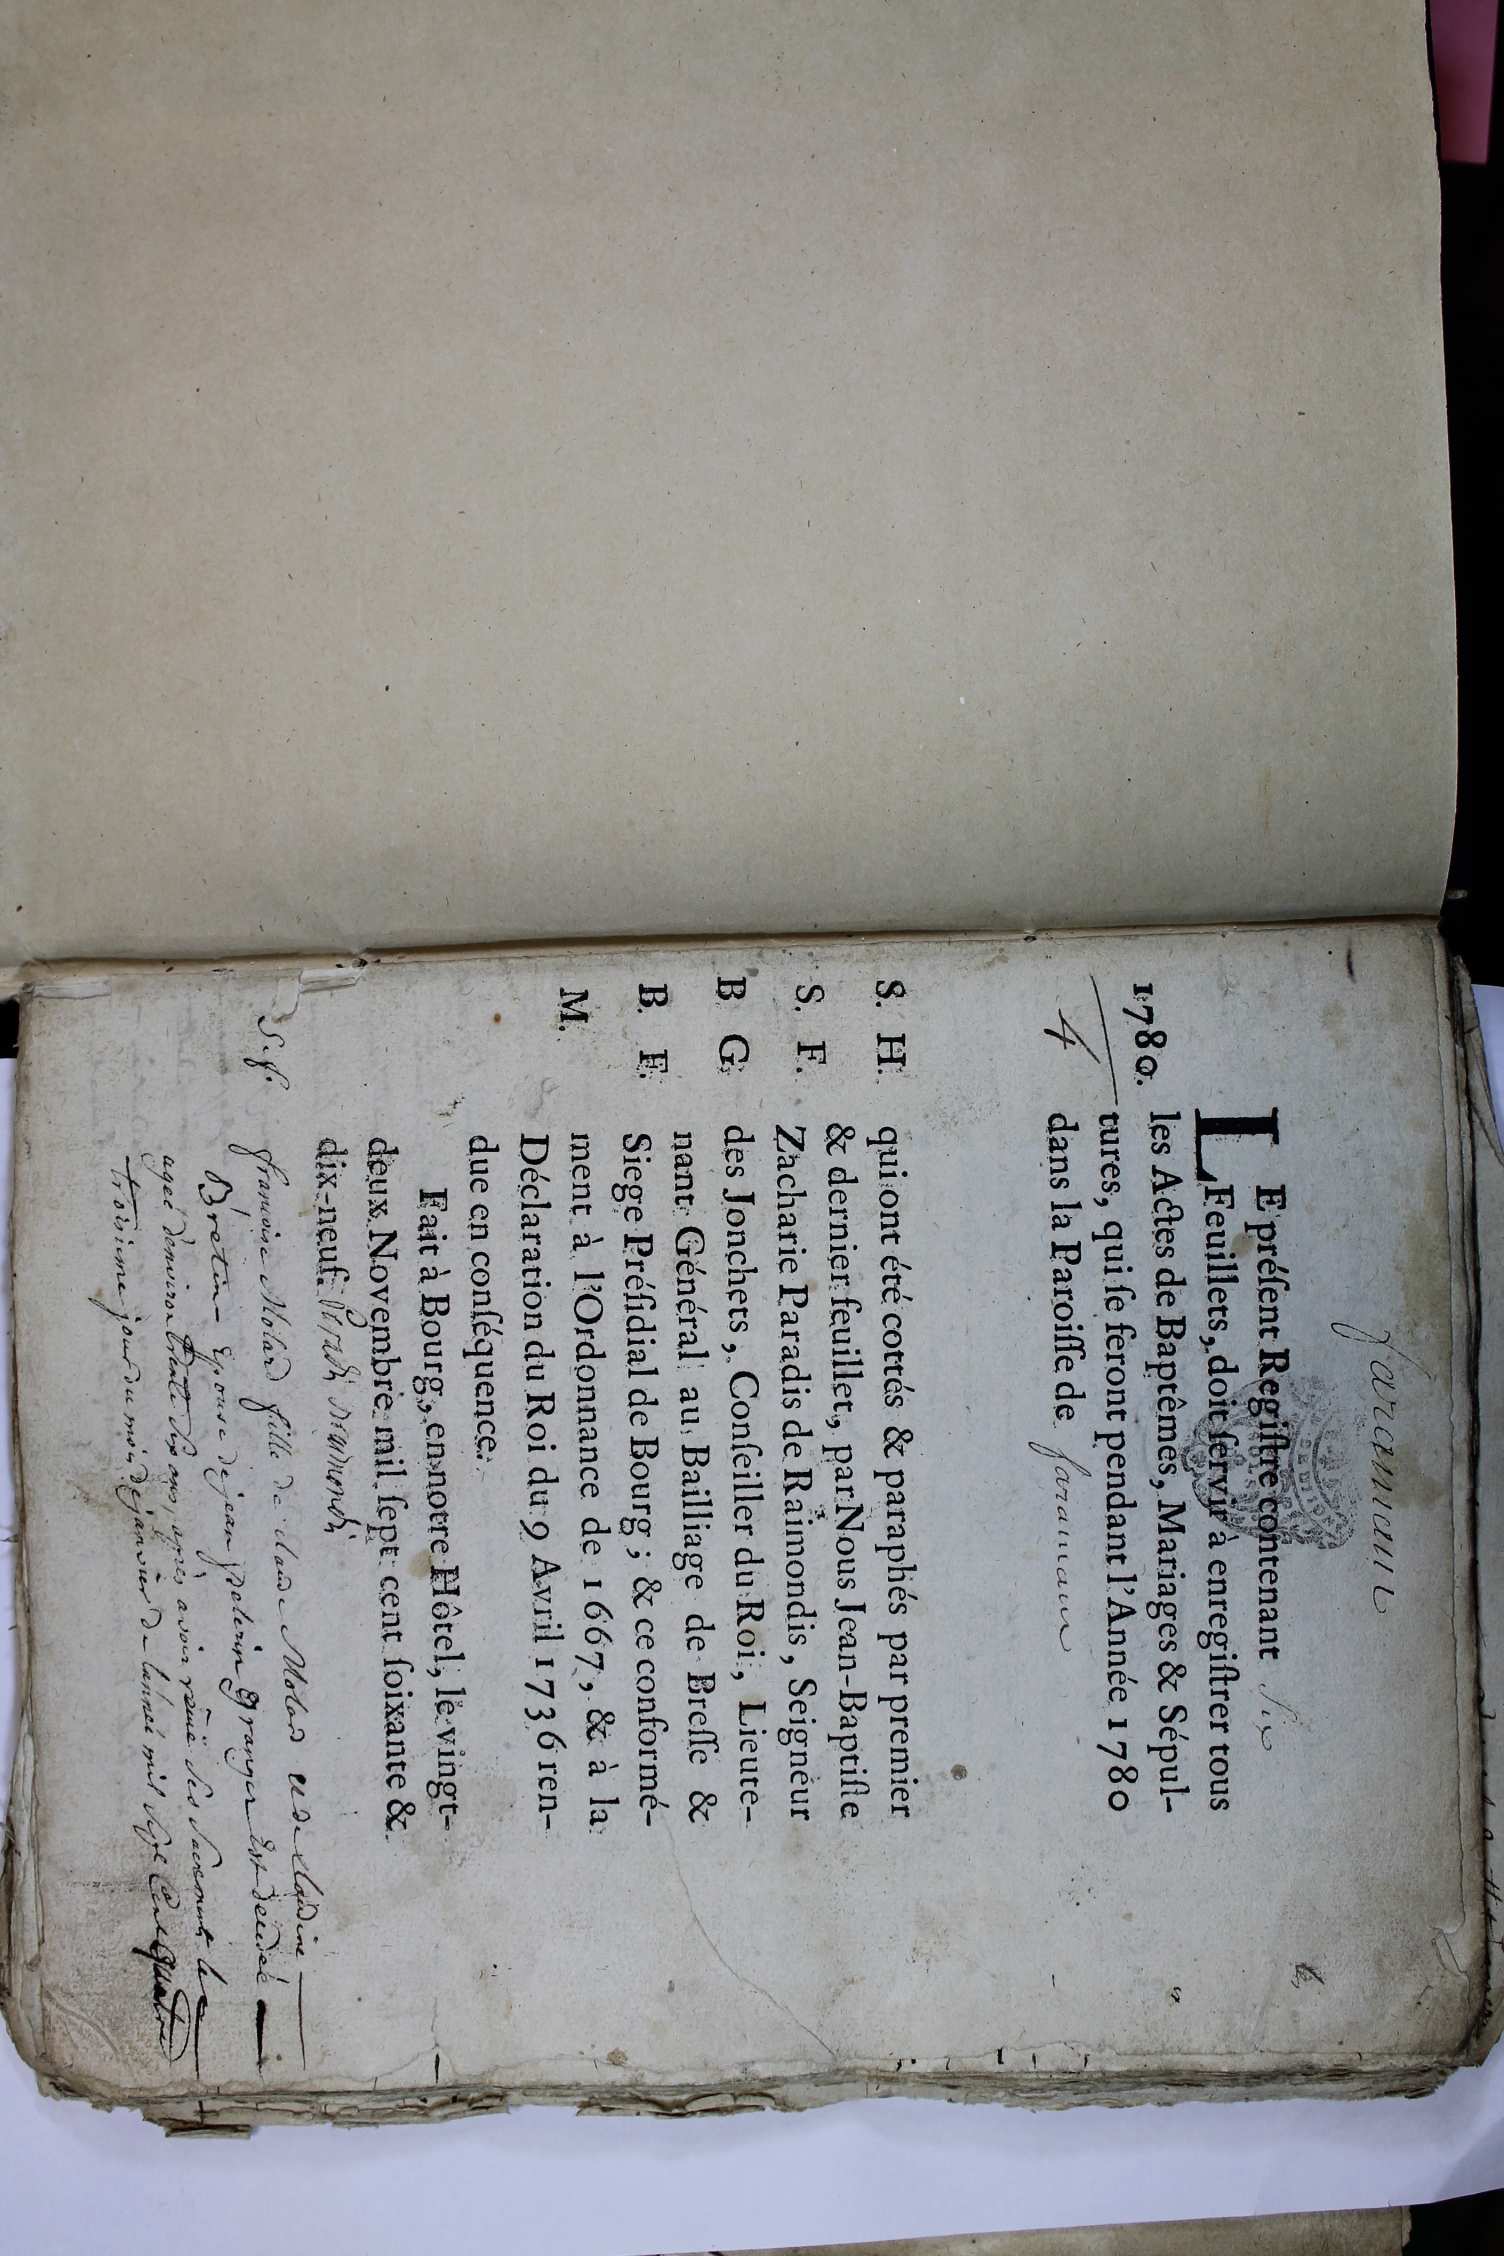 faramant
LE préſent Regiſtre contenant six
Feuillets, doit ſervir à enregiſtrer tous
1780. les Actes de Baptêmes, Mariages & Sépul-
tures, qui ſe feront pendant l'Année 1780
4 dans la Paroiſſe de faramant
S. H. qui ont été cottés & paraphés par premier
& dernier feuillet, par Nous Jean-Baptiſte
S. F. Zacharie Paradis de Raimondis, Seigneur
B G. des Jonchets, Conſeiller du Roi, Lieute-
nant Général au Bailliage de Breſſe &
B. F. Siege Préſidial de Bourg; & ce conformé-
M. ment à l'Ordonnance de 1667, & à la
Déclaration du Roi du 9 Avril 1736 ren-
due en conſéquence.
Fait à Bourg, en notre Hôtel, le vingt-
deux Novembre mil ſept cent ſoixante &
dix-neuf. Paradis Reymondis
S. f. francoise Molard fille de claude Molard et de claudine
Bretin Epouse de jean pelerin granger Est decedeé
agee d'environ trente six ans, apres avoir recue ses sacrements le
troisieme jour du mois de janvier de lanneé mil sept Cent quatre